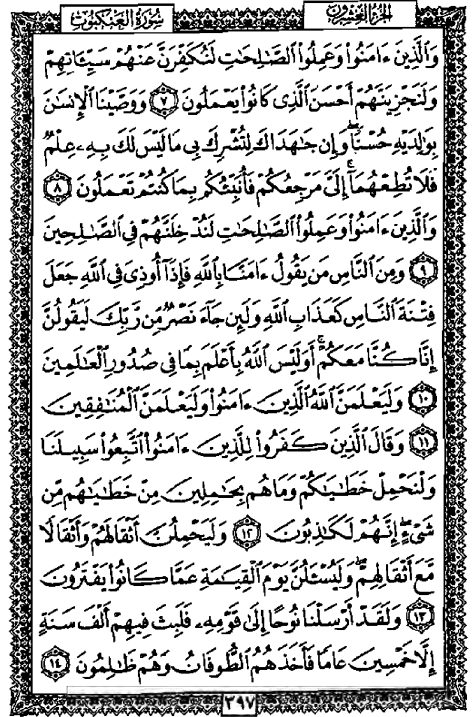 الجزء العشرون
سورة العنكبوت
وَالَّذِينَ ءَامَنُوا۟ وَعَمِلُوا۟ الصَّـٰلِحَـٰتِ لَنُكَفِّرَنَّ عَنْهُمْ سَيِّـَٔاتِهِمْ
وَلَنَجْزِيَنَّهُمْ أَحْسَنَ الَّذِى كَانُوا۟ يَعْمَلُونَ ٧ وَوَصَّيْنَا الْإِنسَـٰنَ
بِوَٰلِدَيْهِ حُسْنًا ۖ وَإِن جَـٰهَدَاكَ لِتُشْرِكَ بِى مَا لَيْسَ لَكَ بِهِۦ عِلْمٌ
فَلَا تُطِعْهُمَآ ۚ إِلَىَّ مَرْجِعُكُمْ فَأُنَبِّئُكُم بِمَا كُنتُمْ تَعْمَلُونَ ٨
وَالَّذِينَ ءَامَنُوا۟ وَعَمِلُوا۟ الصَّـٰلِحَـٰتِ لَنُدْخِلَنَّهُمْ فِى الصَّـٰلِحِينَ
٩ وَمِنَ النَّاسِ مَن يَقُولُ ءَامَنَّا بِاللَّهِ فَإِذَآ أُوذِىَ فِى اللَّهِ جَعَلَ
فِتْنَةَ النَّاسِ كَعَذَابِ اللَّهِ وَلَئِن جَآءَ نَصْرٌ مِّن رَّبِّكَ لَيَقُولُنَّ
إِنَّا كُنَّا مَعَكُمْ ۚ أَوَلَيْسَ اللَّهُ بِأَعْلَمَ بِمَا فِى صُدُورِ الْعَـٰلَمِينَ
١٠ وَلَيَعْلَمَنَّ اللَّهُ الَّذِينَ ءَامَنُوا۟ وَلَيَعْلَمَنَّ الْمُنَـٰفِقِينَ
١١ وَقَالَ الَّذِينَ كَفَرُوا۟ لِلَّذِينَ ءَامَنُوا۟ اتَّبِعُوا۟ سَبِيلَنَا
وَلْنَحْمِلْ خَطَـٰيَـٰكُمْ وَمَا هُم بِحَـٰمِلِينَ مِنْ خَطَـٰيَـٰهُم مِّن
شَىْءٍ ۖ إِنَّهُمْ لَكَـٰذِبُونَ ١٢ وَلَيَحْمِلُنَّ أَثْقَالَهُمْ وَأَثْقَالًا
مَّعَ أَثْقَالِهِمْ ۖ وَلَيُسْـَٔلُنَّ يَوْمَ الْقِيَـٰمَةِ عَمَّا كَانُوا۟ يَفْتَرُونَ
١٣ وَلَقَدْ أَرْسَلْنَا نُوحًا إِلَىٰ قَوْمِهِۦ فَلَبِثَ فِيهِمْ أَلْفَ سَنَةٍ
إِلَّا خَمْسِينَ عَامًا فَأَخَذَهُمُ الطُّوفَانُ وَهُمْ ظَـٰلِمُونَ ١٤
٣٩٧